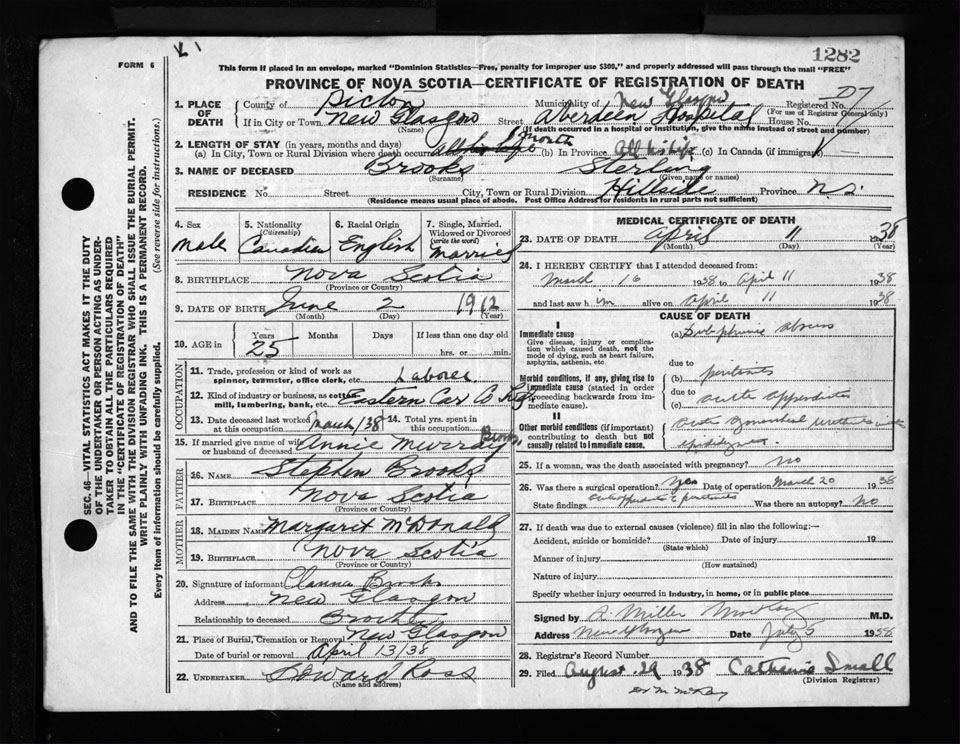 1282
FORM 6
This form if placed in an envelope, marked "Dominion Statistics—Free, penalty for improper use $300," and properly addressed will pass through the mail "FREE"
PROVINCE OF NOVA SCOTIA—CERTIFICATE OF REGISTRATION OF DEATH
SEC. 46—VITAL STATISTICS ACT MAKES IT THE DUTY
OF THE UNDERTAKER OR PERSON ACTING AS UNDER-
TAKER TO OBTAIN ALL THE PARTICULARS REQUIRED
IN THE "CERTIFICATE OF REGISTRATION OF DEATH"
AND TO FILE THE SAME WITH THE DIVISION REGISTRAR WHO SHALL ISSUE THE BURIAL PERMIT.
WRITE PLAINLY WITH UNFADING INK. THIS IS A PERMANENT RECORD.
Every item of information should be carefully supplied. (See reverse side for instructions.)
1. PLACE OF DEATH County of Pictou Municipality of New Glasgow Registered No.
(For use of Registrar General only)
If in City or Town New Glasgow Street Aberdeen Hospital House No.
(Name) (If death occurred in a hospital or institution, give the name instead of street and number)
2. LENGTH OF STAY (in years, months and days)
(a) In City, Town or Rural Division where death occurred 1 month (b) In Province All his life (c) In Canada (if immigrant)
3. NAME OF DECEASED Brooks Sterling
(Surname) (Given name or names)
RESIDENCE No. Street City, Town or Rural Division Hillside Province N.S.
(Residence means usual place of abode. Post Office Address for residents in rural parts not sufficient)
4. Sex Male
5. Nationality (Citizenship) Canadian
6. Racial Origin English
7. Single, Married, Widowed or Divorced (write the word) Married
8. BIRTHPLACE Nova Scotia
(Province or Country)
9. DATE OF BIRTH June 2 1912
(Month) (Day) (Year)
10. AGE in Years 25 Months Days If less than one day old hrs. or min.
OCCUPATION
11. Trade, profession or kind of work as spinner, teamster, office clerk, etc. Laborer
12. Kind of industry or business, as cotton mill, lumbering, bank, etc. Eastern Car Co
13. Date deceased last worked at this occupation March/38 14. Total yrs. spent in this occupation
15. If married give name of wife or husband of deceased Annie Murray Brooks
FATHER
16. NAME Stephen Brooks
17. BIRTHPLACE Nova Scotia
(Province or Country)
MOTHER
18. MAIDEN NAME Margaret McDonald
19. BIRTHPLACE Nova Scotia
(Province or Country)
20. Signature of informant Brooks
Address New Glasgow
Relationship to deceased Brother
21. Place of Burial, Cremation or Removal New Glasgow
Date of burial or removal April 13/38
22. UNDERTAKER Howard Ross
(Name and address)
MEDICAL CERTIFICATE OF DEATH
23. DATE OF DEATH April 11 38
(Month) (Day) (Year)
24. I HEREBY CERTIFY that I attended deceased from:
March 16 1938 to April 11 1938
and last saw him alive on April 11 1938
CAUSE OF DEATH
I
Immediate cause
Give disease, injury or complication which caused death, not the mode of dying, such as heart failure, asphyxia, asthenia, etc.
(a) Subphrenic abscess
due to
Morbid conditions, if any, giving rise to immediate cause (stated in order proceeding backwards from immediate cause).
(b) peritonitis
due to
(c) acute appendicitis
II
Other morbid conditions (if important) contributing to death but not causally related to immediate cause.
acute gonorrheal urethritis with
epididymitis
25. If a woman, was the death associated with pregnancy? no
26. Was there a surgical operation? Yes Date of operation March 20 1938
State findings Acute appendicitis & peritonitis Was there an autopsy? No
27. If death was due to external causes (violence) fill in also the following:—
Accident, suicide or homicide? Date of injury 19
(State which)
Manner of injury
(How sustained)
Nature of injury
Specify whether injury occurred in industry, in home, or in public place
Signed by A. Miller M.D.
Address New Glasgow Date July 5 1938
28. Registrar's Record Number
29. Filed August 29 1938 Catharine Small
(Division Registrar)